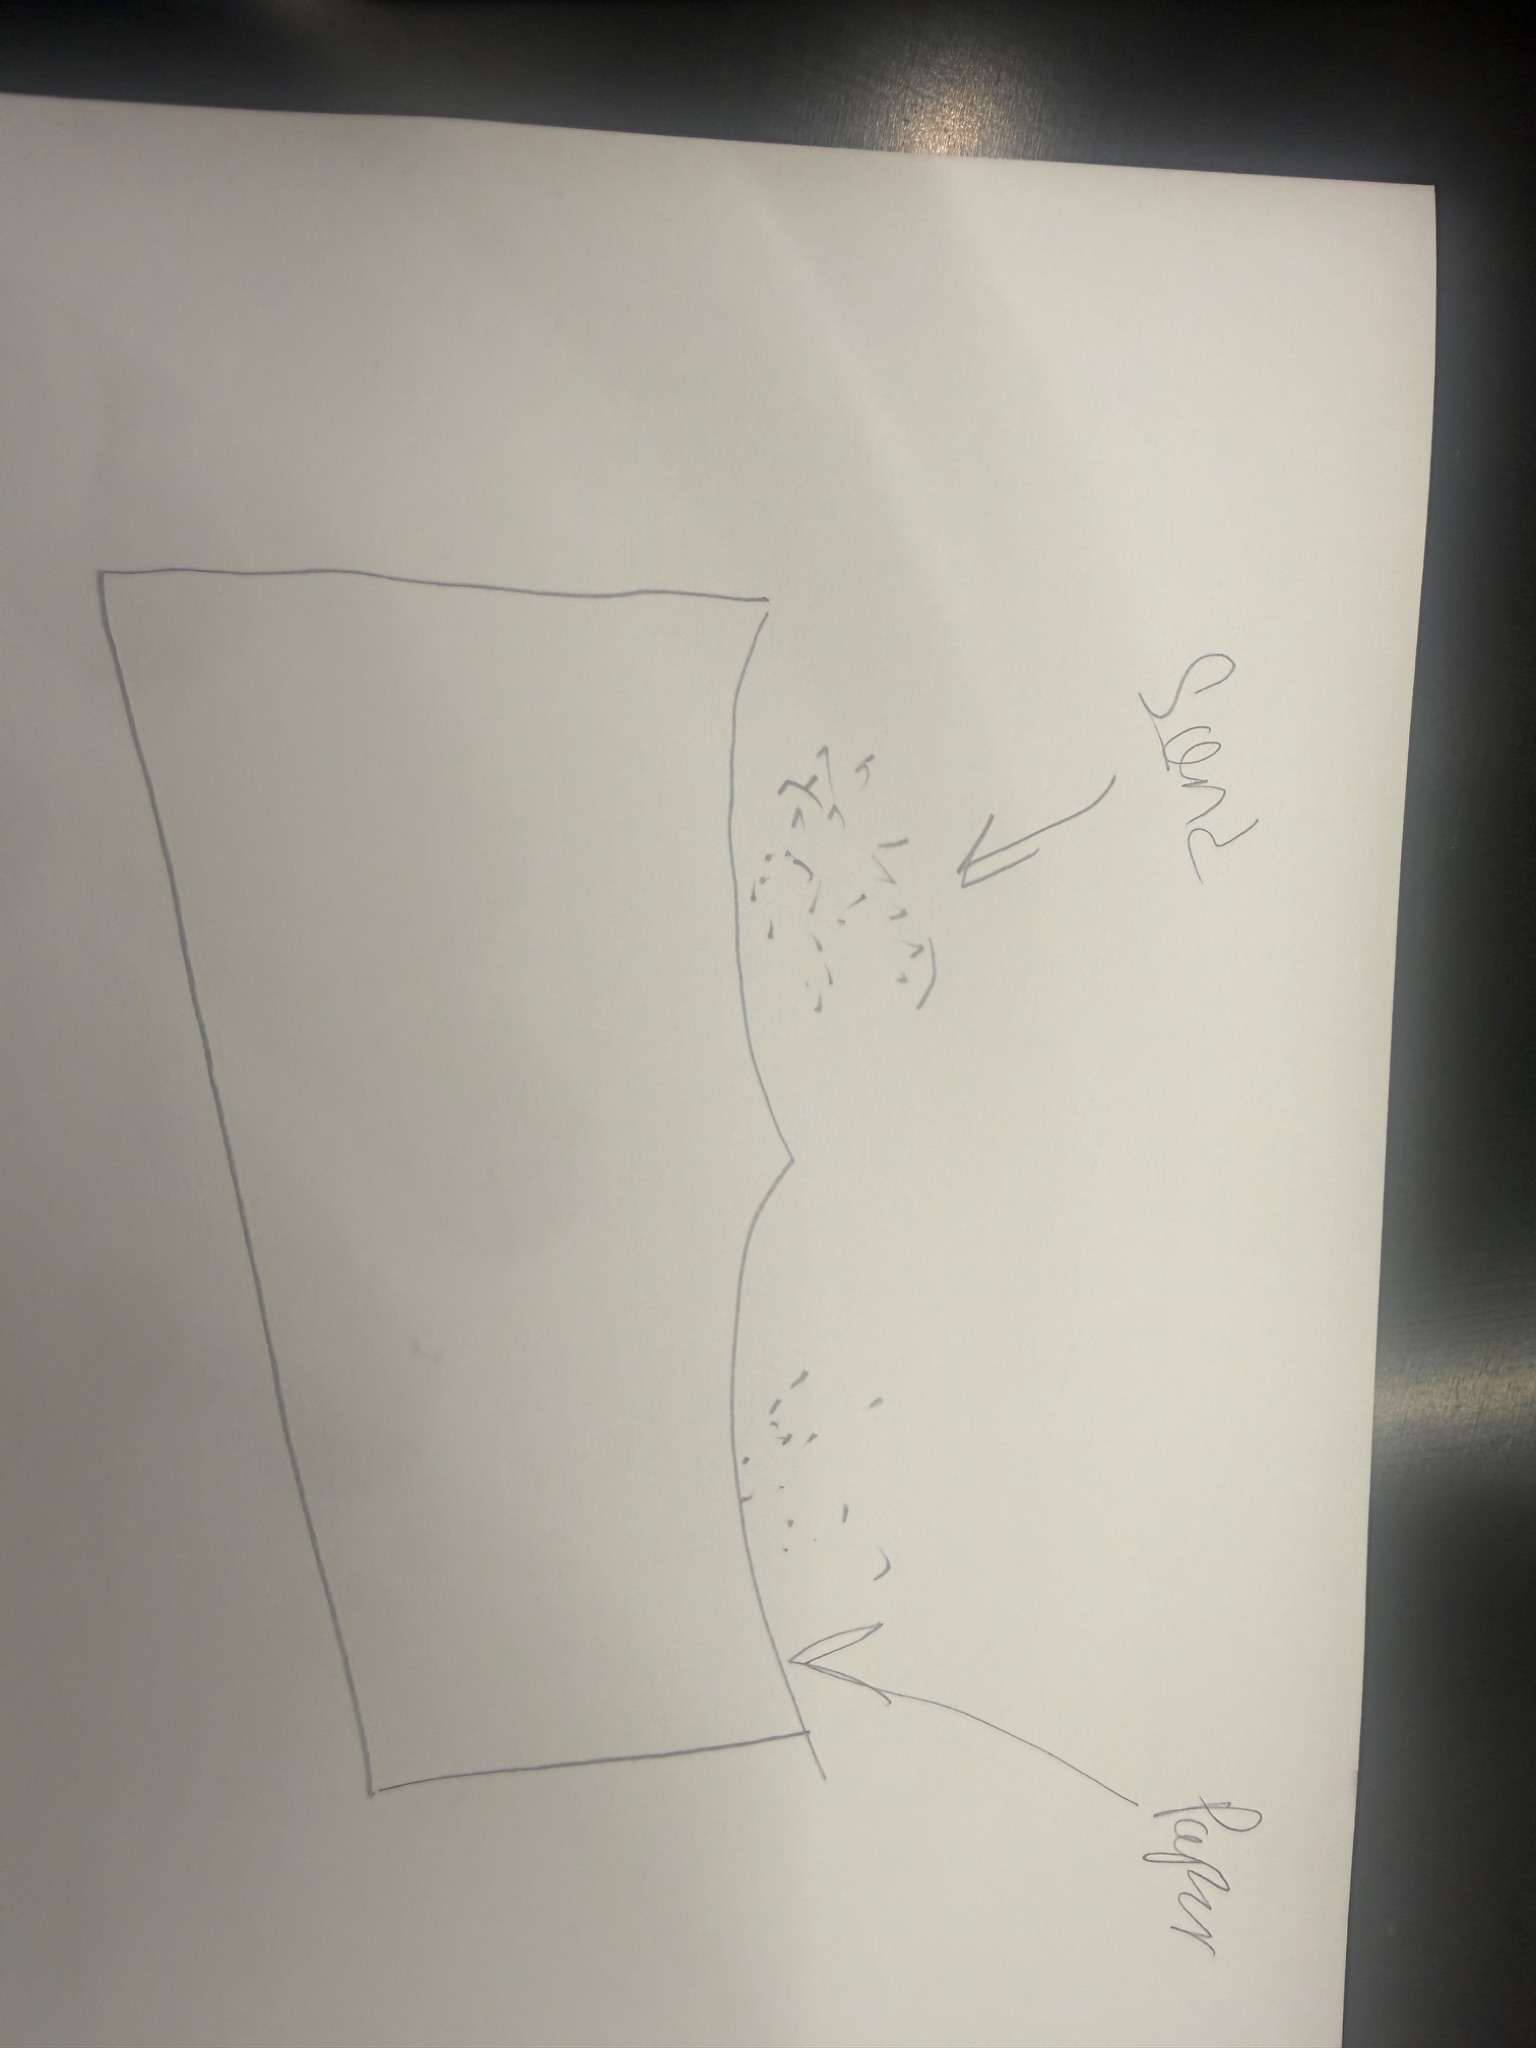 Sand
Paper